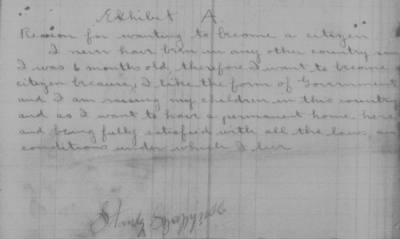 Exhibit A
Reason for wanting to become a citizen
I never have been in any other country since
I was 6 months old, therefore I want to become
citizen because, I like the form of Government
and I am raising my children in this country
and as I want to have a permanent home here
and being fully satisfied with all the laws, and
conditions under which I live